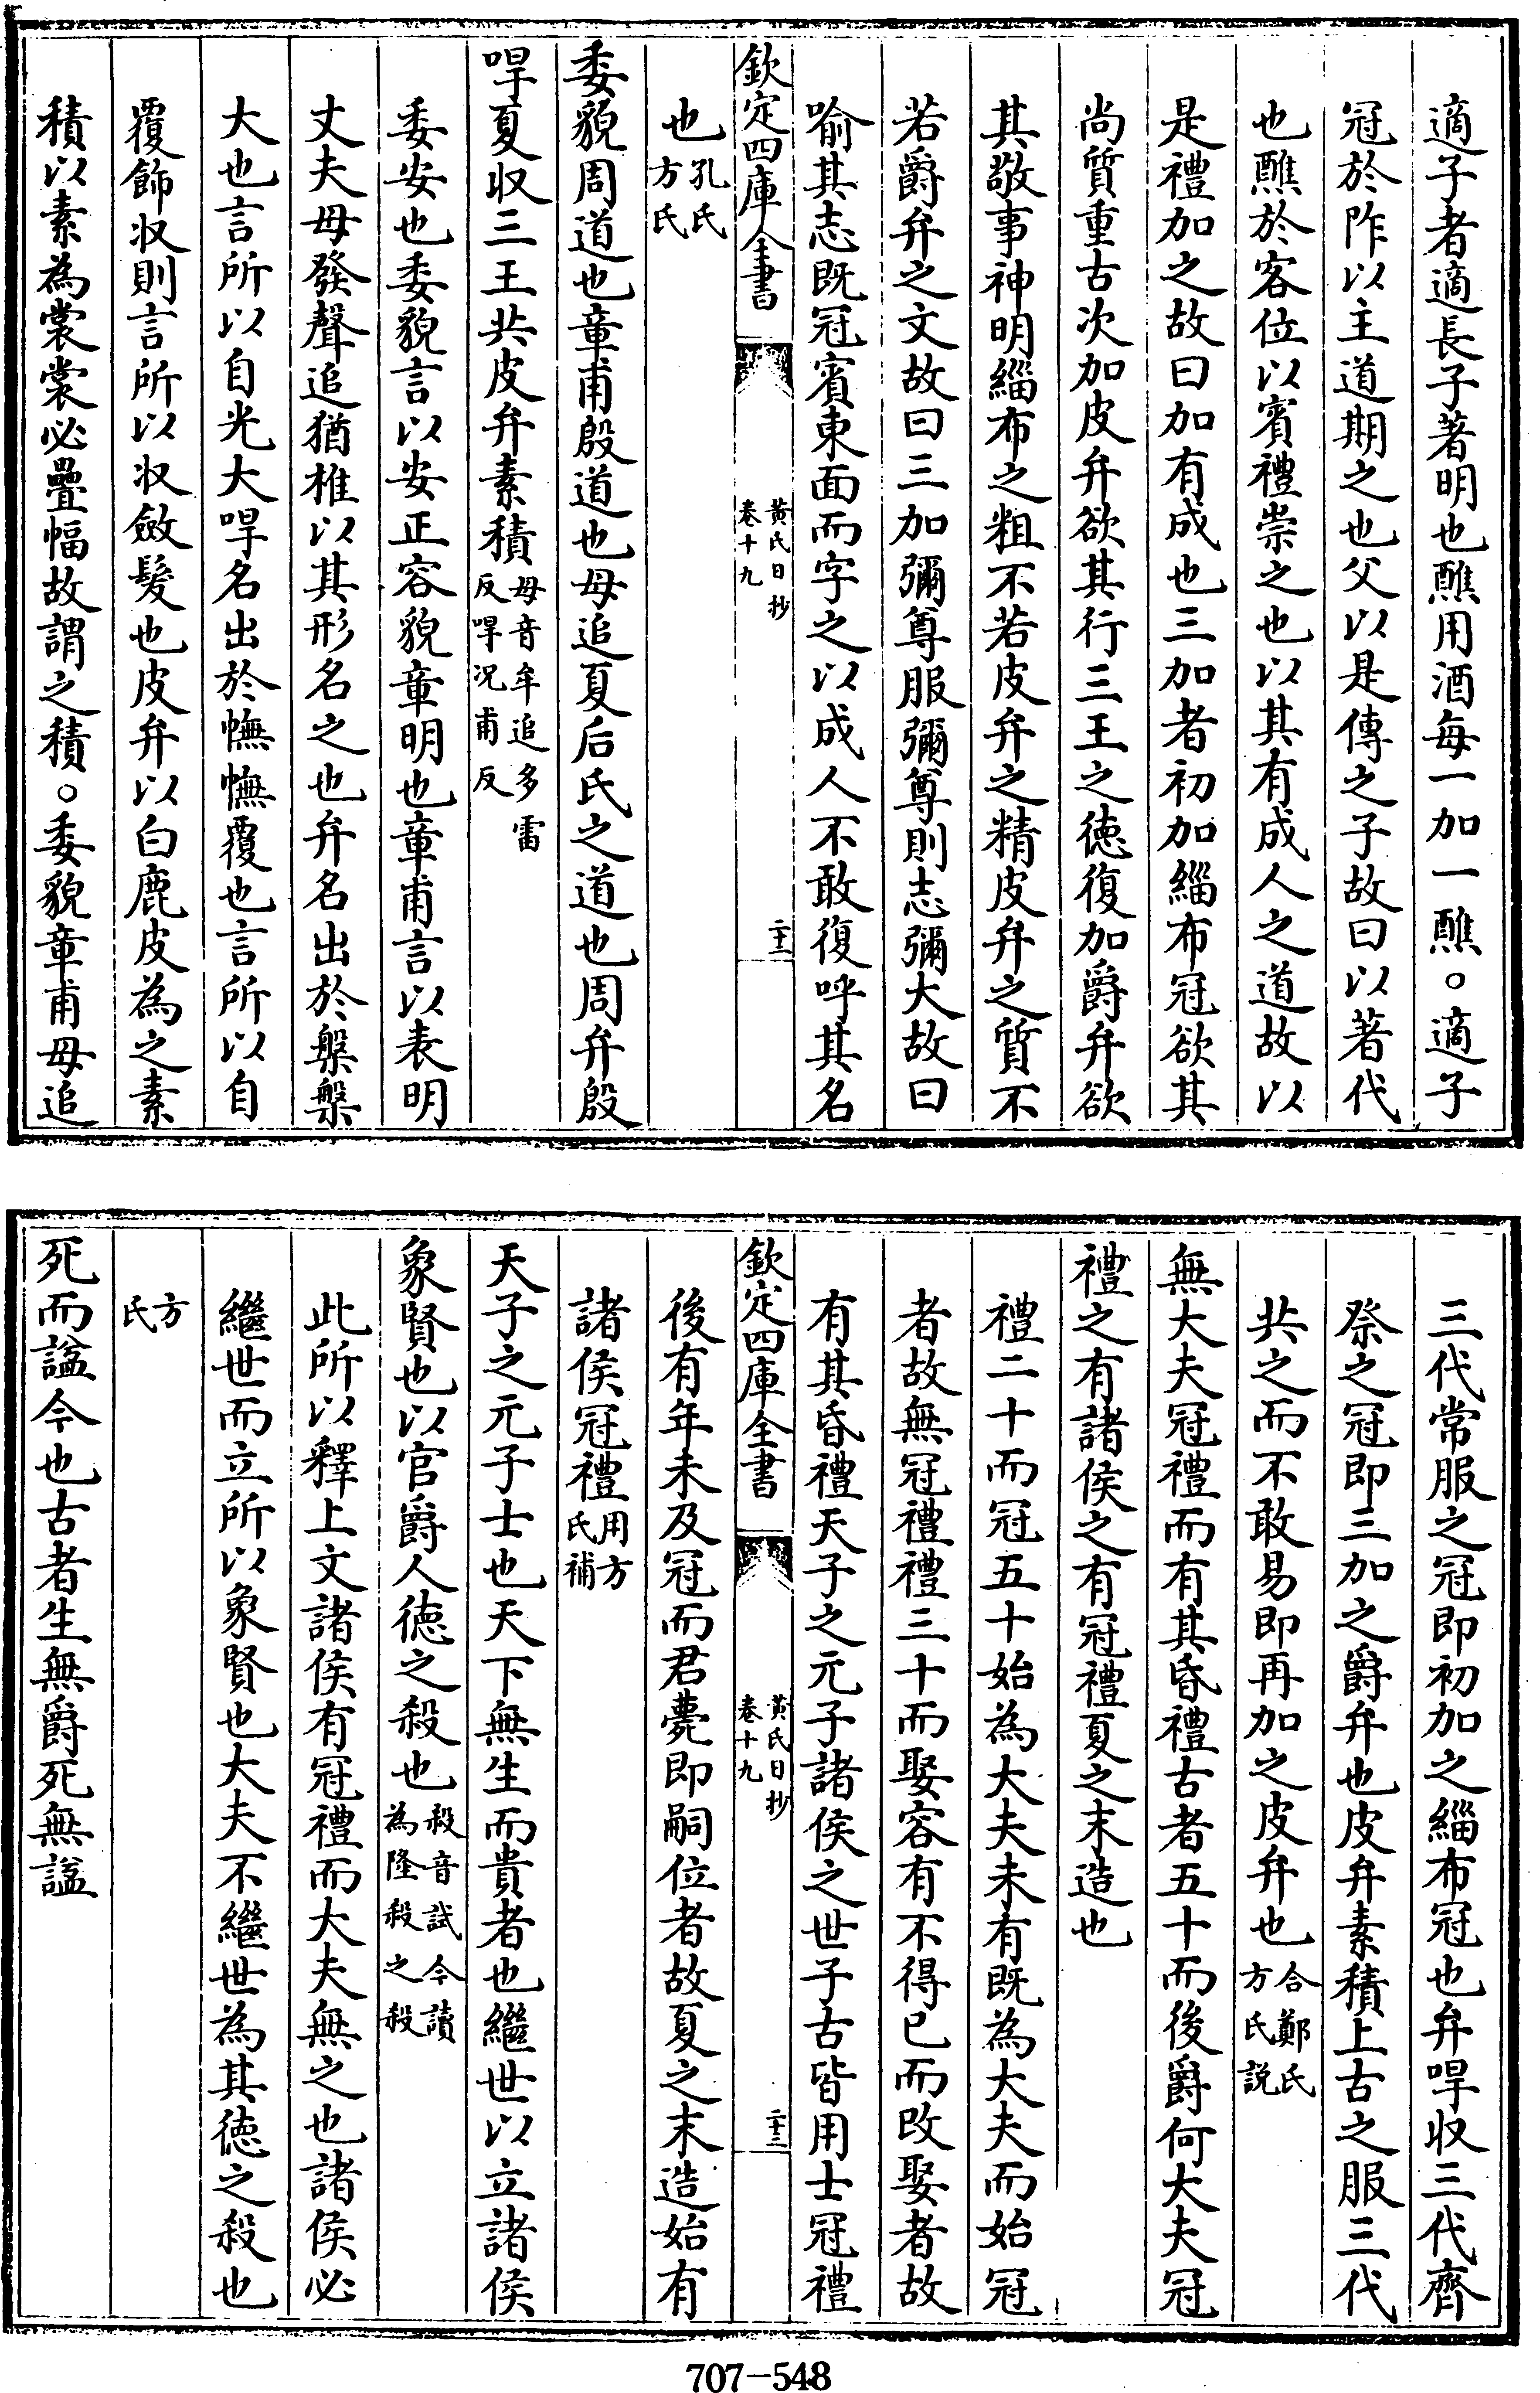 適子者適長子著明也醮用酒每一加一醮。適子
冠於阼以主道期之也父以是傳之子故曰以著代
也醮於客位以賓禮崇之也以其有成人之道故以
是禮加之故曰加有成也三加者初加緇布冠欲其
尚質重古次加皮弁欲其行三王之徳復加爵弁欲
其敬事神明緇布之粗不若皮弁之精皮弁之質不
若爵弁之文故曰三加彌尊服彌尊則志彌大故曰
喻其志既冠賓東面而字之以成人不敢復呼其名
欽定四庫全書 黃氏日抄 卷十九 二十二
也孔氏方氏
委貌周道也章甫殷道也母追夏后氏之道也周弁殷
哻夏収三王共皮弁素積母音牟追多雷反哻况甫反
委安也委貌言以安正容貌章明也章甫言以表明
丈夫母發聲追猶椎以其形名之也弁名出於槃槃
大也言所以自光大哻名出於幠幠覆也言所以自
覆飾収則言所以収斂髮也皮弁以白鹿皮為之素
積以素為裳裳必疊幅故謂之積。委貌章甫母追
三代常服之冠即初加之緇布冠也弁哻収三代齊
祭之冠即三加之爵弁也皮弁素積上古之服三代
共之而不敢易即再加之皮弁也合鄭氏方氏説
無大夫冠禮而有其昏禮古者五十而後爵何大夫冠
禮之有諸侯之有冠禮夏之末造也
禮二十而冠五十始為大夫未有既為大夫而始冠
者故無冠禮禮三十而娶容有不得已而改娶者故
有其昏禮天子之元子諸侯之世子古皆用士冠禮
欽定四庫全書 黃氏日抄 卷十九 二十三
後有年未及冠而君薨即嗣位者故夏之末造始有
諸侯冠禮用方氏補
天子之元子士也天下無生而貴者也繼世以立諸侯
象賢也以官爵人徳之殺也殺音試今讀為隆殺之殺
此所以釋上文諸侯有冠禮而大夫無之也諸侯必
繼世而立所以象賢也大夫不繼世為其徳之殺也
方氏
死而諡今也古者生無爵死無諡
707-548